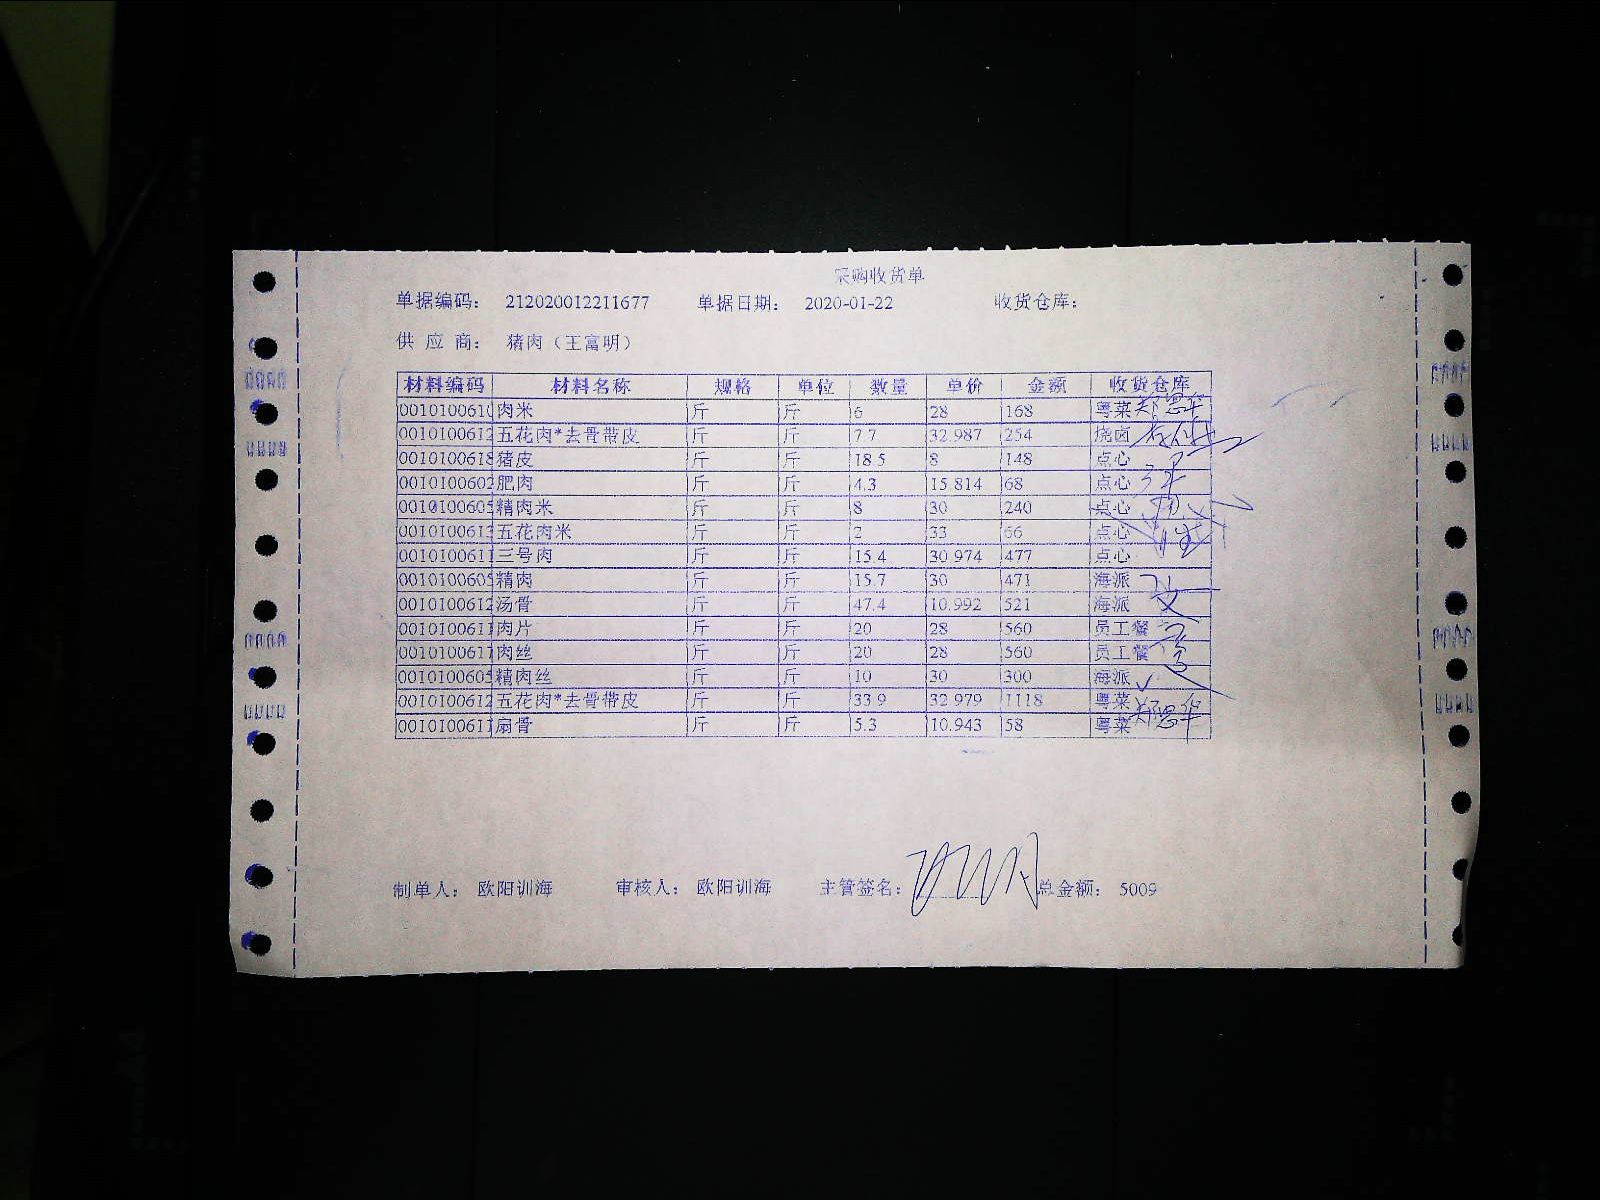 采购收货单
单据编码： 212020012211677 单据日期： 2020-01-22 收货仓库：
供 应 商： 猪肉（王富明）
材料编码 材料名称 规格 单位 数量 单价 金额 收货仓库
001010061 肉米 斤 斤 6 28 168 粤菜 郑思华
0010100612 五花肉*去骨带皮 斤 斤 7.7 32.987 254 烧卤
0010100618 猪皮 斤 斤 18.5 8 148 点心
0010100602 肥肉 斤 斤 4.3 15.814 68 点心
0010100605 精肉米 斤 斤 8 30 240 点心
0010100613 五花肉米 斤 斤 2 33 66 点心
0010100611 三号肉 斤 斤 15.4 30.974 477 点心
0010100605 精肉 斤 斤 15.7 30 471 海派
0010100612 汤骨 斤 斤 47.4 10.992 521 海派
0010100611 肉片 斤 斤 20 28 560 员工餐
0010100617 肉丝 斤 斤 20 28 560 员工餐
0010100605 精肉丝 斤 斤 10 30 300 海派
0010100612 五花肉*去骨带皮 斤 斤 33.9 32.979 1118 粤菜 郑思华
0010100611 扇骨 斤 斤 5.3 10.943 58 粤菜
制单人： 欧阳训海 审核人： 欧阳训海 主管签名： 总金额： 5009